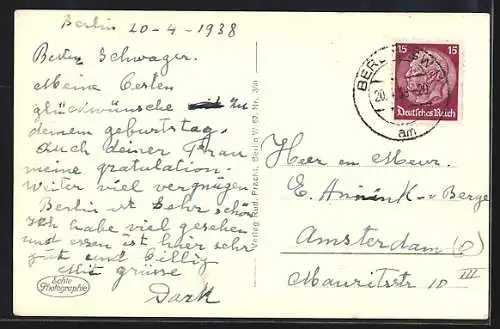 Berlin 20-4-1938
Bester Schwager.
Meine besten
glückwünsche zu
deinem geburtstag.
Auch deiner Frau
meine gratulation.
Weiter viel vergnügen
Berlin ist sehr schön
Ich habe viel gesehen
und essen ist hier sehr
gut und billig
Mit grüsse
Echte
Photographie
Verlag Rud. Pracht, Berlin W 62, Nr. 300
BERLIN
20.
am
15 15
Deutsches Reich
Heer en Mevr.
E. Annink - v Berge
Amsterdam (O)
Mauritsstr 10 III